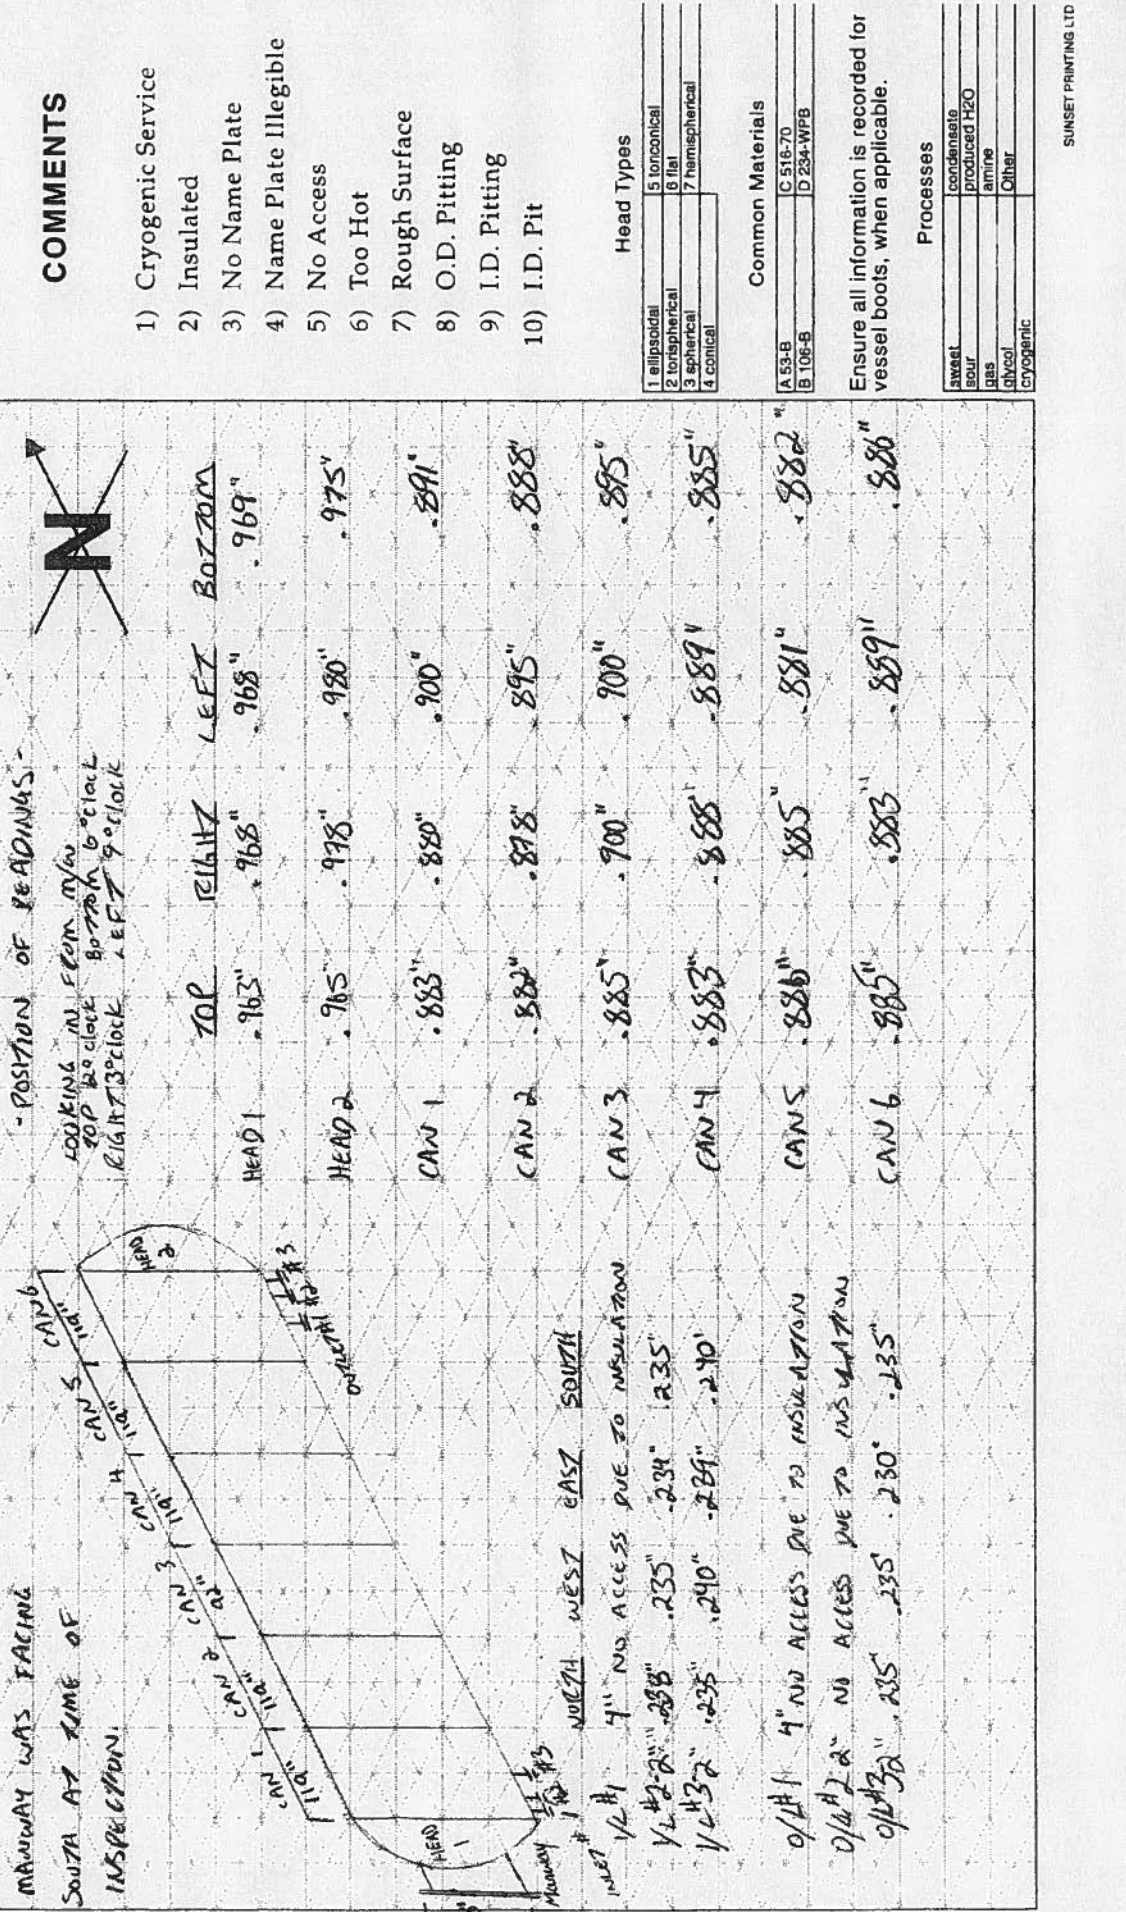 MANWAY WAS FACING
SOUTH AT TIME OF
INSPECTION.
CAN 1
112"
CAN 2
112"
CAN 3
92"
CAN 4
112"
CAN 5
112"
CAN 6
112"
HEAD 1
HEAD 2
Manway
INLET #1 #2 #3
OUTLET #1 #2 #3
- POSITION OF READINGS -
LOOKING IN FROM M/W
TOP 12 o'clock BOTTOM 6 o'clock
RIGHT 3 o'clock LEFT 9 o'clock
N
TOP RIGHT LEFT BOTTOM
HEAD 1 .963" .968" .968" .969"
HEAD 2 .965" .978" .980" .975"
CAN 1 .883" .880" .900" .891"
CAN 2 .882" .878" .895" .888"
CAN 3 .885" .900" .900" .895"
CAN 4 .883" .888" .889" .885"
CAN 5 .886" .885" .881" .882"
CAN 6 .885" .883" .889" .886"
NORTH WEST EAST SOUTH
I/L #1 4" NO ACCESS DUE TO INSULATION
I/L #2-2" .238" .235" .234" .235"
I/L #3-2" .235" .240" .239" .240"
O/L #1 4" NO ACCESS DUE TO INSULATION
O/L #2 2" NO ACCESS DUE TO INSULATION
O/L #3 2" .235" .235" .230" .235"
COMMENTS
1) Cryogenic Service
2) Insulated
3) No Name Plate
4) Name Plate Illegible
5) No Access
6) Too Hot
7) Rough Surface
8) O.D. Pitting
9) I.D. Pitting
10) I.D. Pit
Head Types
1 ellipsoidal 5 toriconical
2 torispherical 6 flat
3 spherical 7 hemispherical
4 conical
Common Materials
A 53-B C 516-70
B 106-B D 234-WPB
Ensure all information is recorded for
vessel boots, when applicable.
Processes
sweet condensate
sour produced H2O
gas amine
glycol Other
cryogenic
SUNSET PRINTING LTD